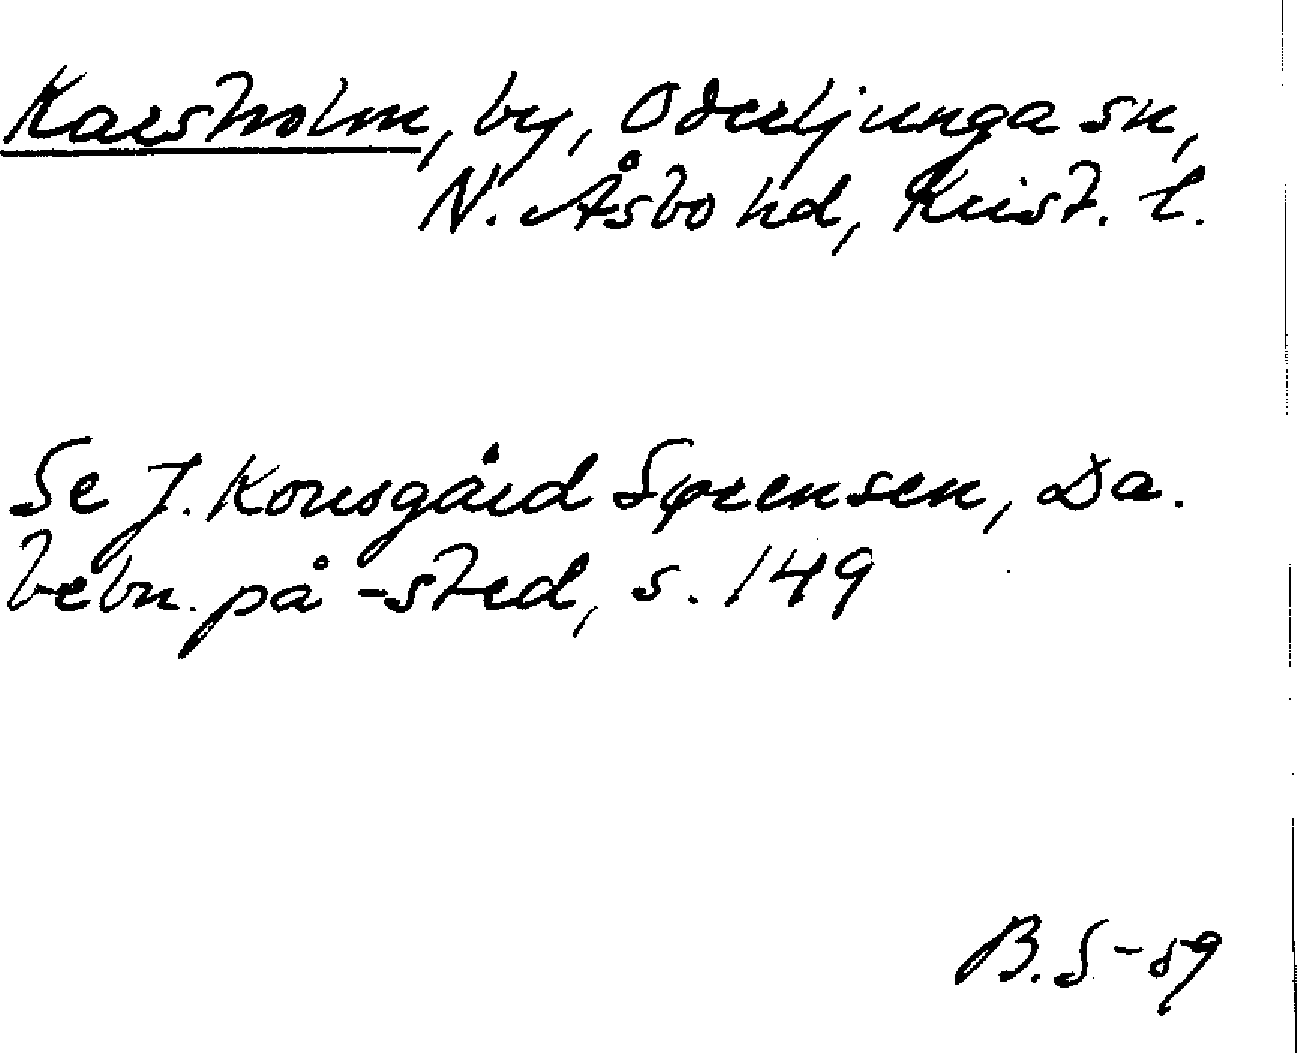 Karsholm, by, Oderljunga sn,
N. Åsbo hd, Krist. l.
Se J. Kousgård Sørensen, Da.
bebn. på -sted, s. 149
B. S-59